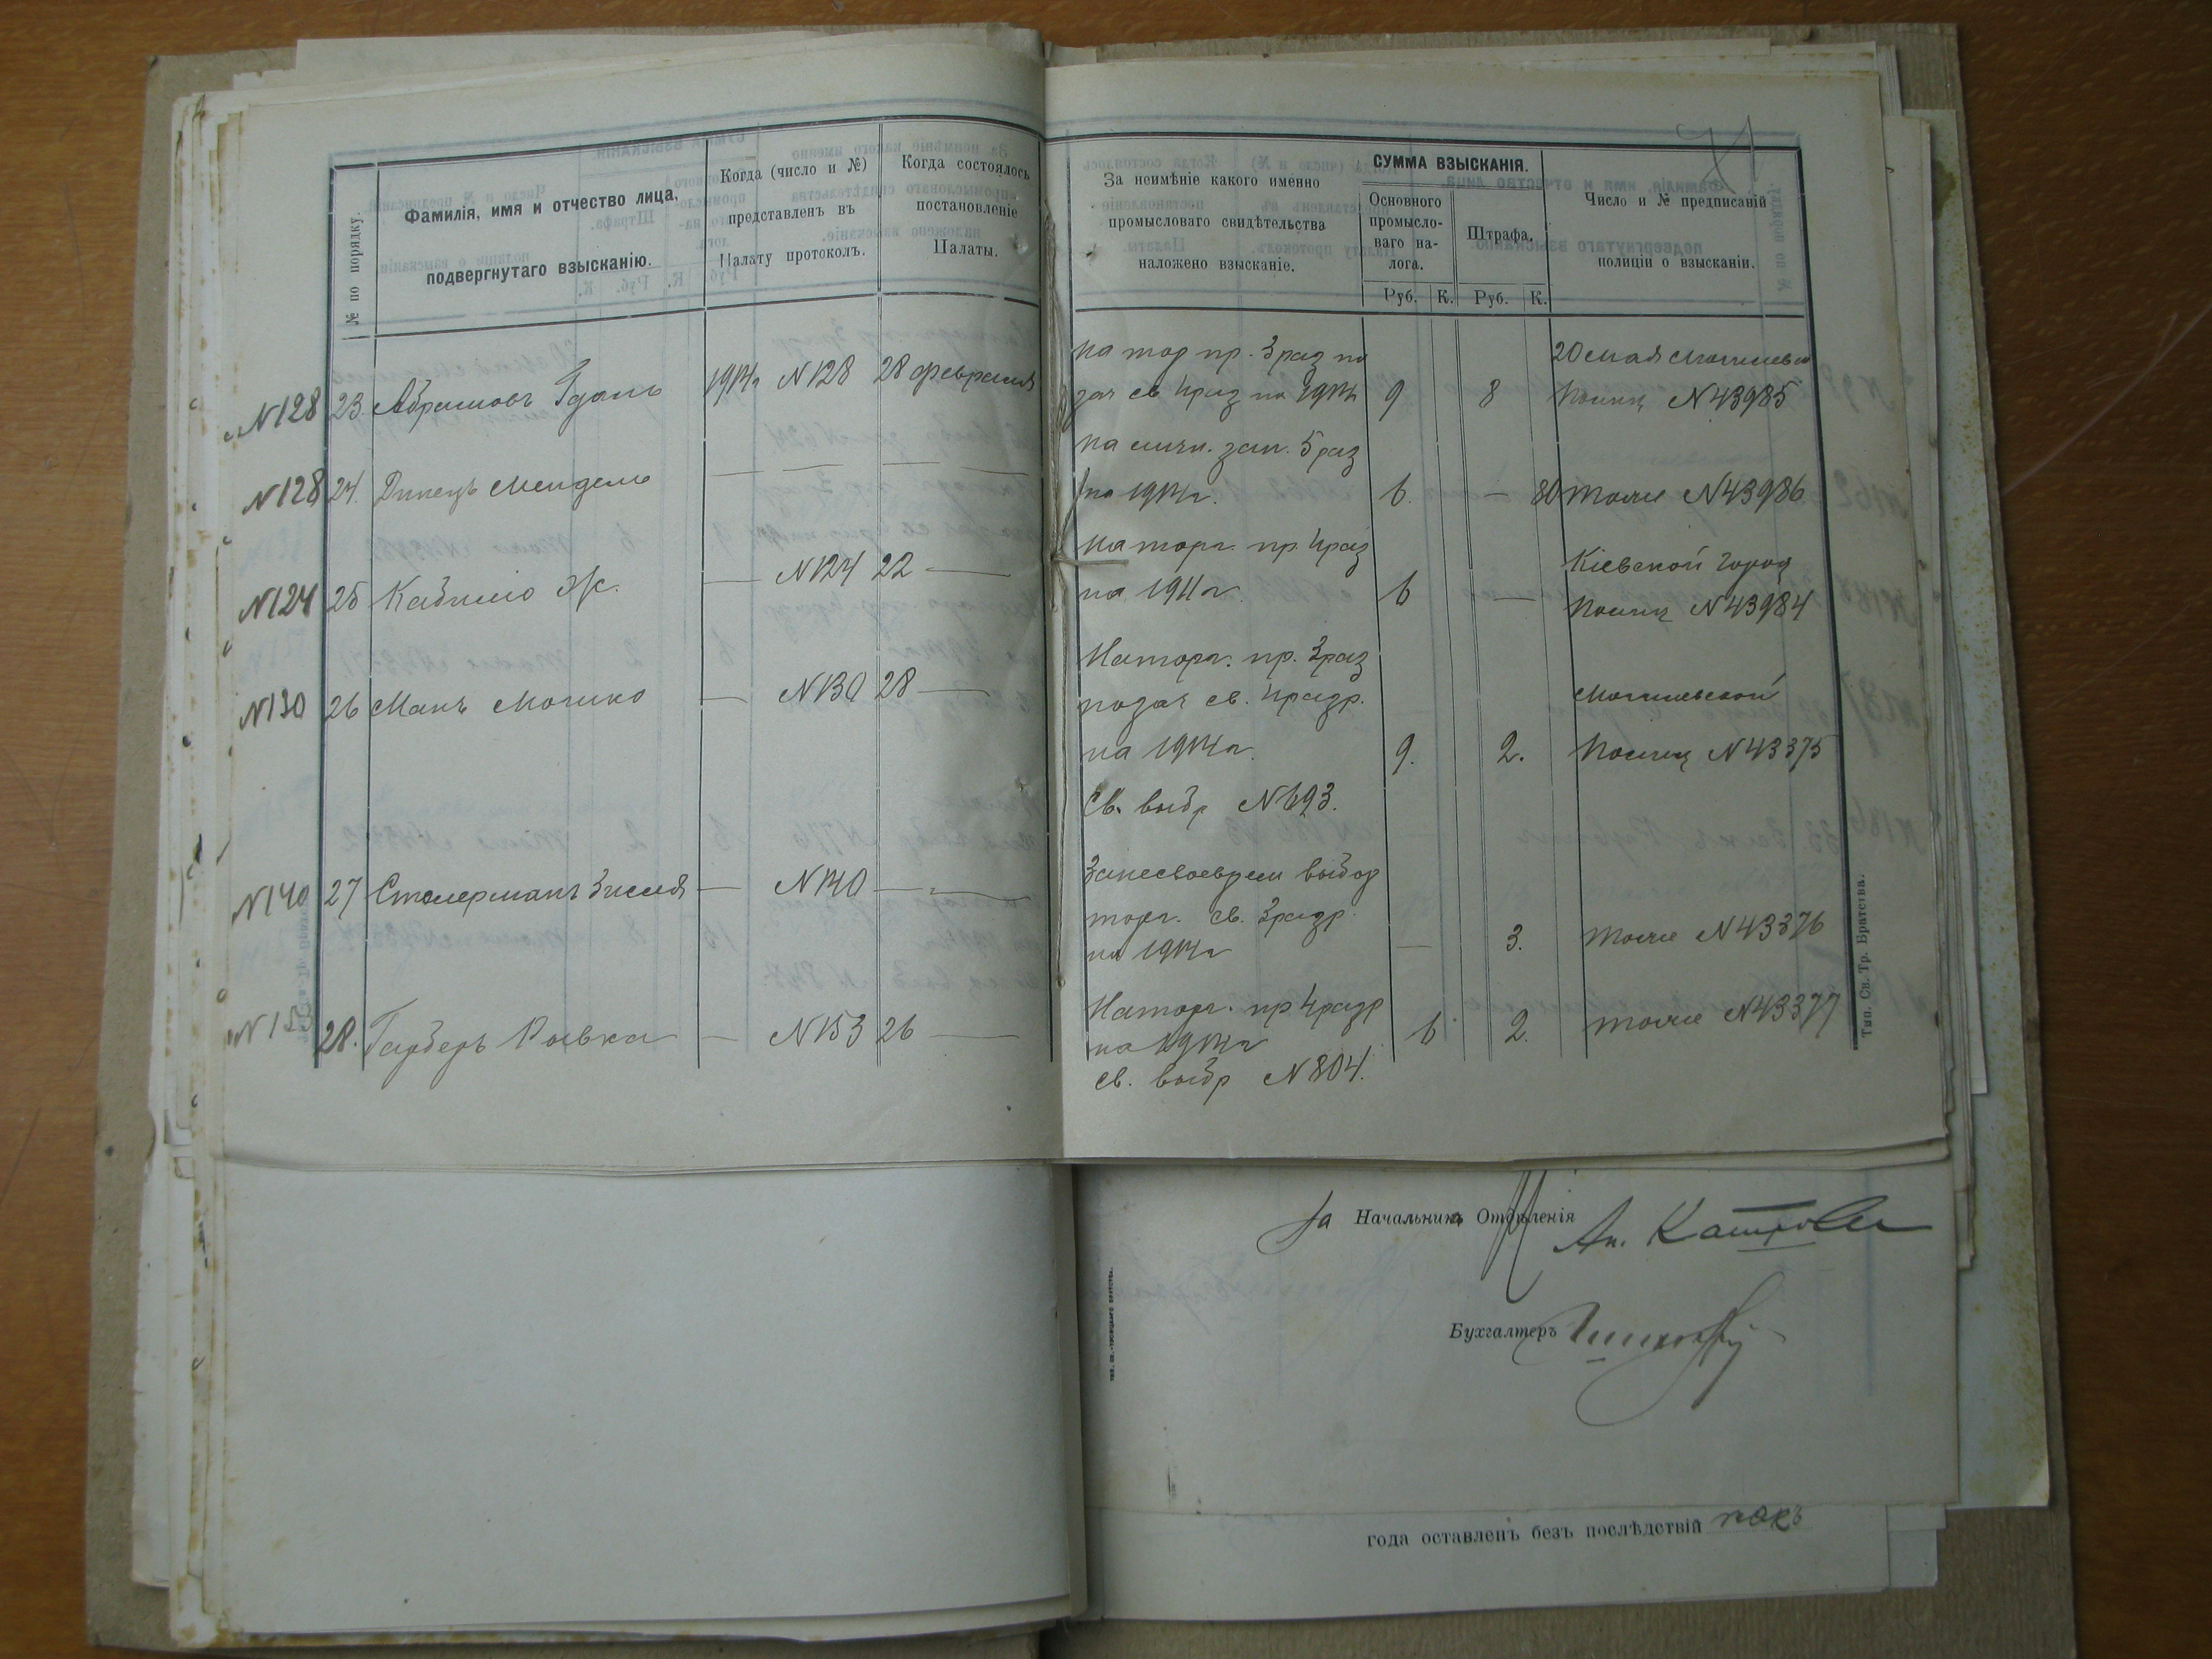 № по порядку.
Фамилія, имя и отчество лица,
подвергнутаго взысканію.
Когда (число и №)
представленъ въ
Палату протоколъ.
Когда состоялось
постановленіе
Палаты.
За неимѣніе какого именно
промысловаго свидѣтельства
наложено взысканіе.
СУММА ВЗЫСКАНІЯ.
Основного
промысло-
ваго на-
лога.
Штрафа.
Руб. К. Руб. К.
Число и № предписаній
полиціи о взысканіи.
N128 23. Абрамовъ 1914г N128 28 февраля
на тор пр. 3 раз по
зач св 4раз на 1914г 9 8
20 мая Могилевск
Полиц N43985
N128 24. Мендель
на личн. зан. 5 раз
на 1914г. 6. — 80 тоже N43986
N124 25 — N124 22 —
на торг. пр. 4раз
на 1914г 6 —
Кіевской город
Полиц N43984
N130 26 Манъ Мошко — N130 28 —
На торг. пр. 3раз
по зач св. 4разр.
на 1914г. 9. 2.
Могилевской
Полиц N43375
Св. выбр N693.
N140 27 Столерманъ Зисля — N140 —
За несвоеврем выбор
торг. св. 3разр
на 1914г — 3. тоже N43376
N153 28. Гарберъ Ривка — N153 26 —
На торг. пр 4разр
на 1914г 6 2. тоже N43377
св. выбр N804.
Тип. Св. Тр. Братства.
За Начальника Отдѣленія
Бухгалтеръ
года оставленъ безъ послѣдствій